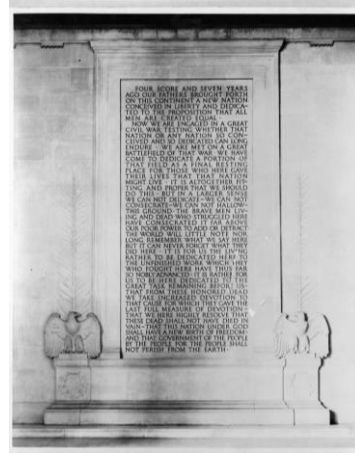 FOUR SCORE AND SEVEN YEARS
AGO OUR FATHERS BROUGHT FORTH
ON THIS CONTINENT A NEW NATION
CONCEIVED IN LIBERTY AND DEDICA-
TED TO THE PROPOSITION THAT ALL
MEN ARE CREATED EQUAL ·
NOW WE ARE ENGAGED IN A GREAT
CIVIL WAR TESTING WHETHER THAT
NATION OR ANY NATION SO CON-
CEIVED AND SO DEDICATED CAN LONG
ENDURE · WE ARE MET ON A GREAT
BATTLEFIELD OF THAT WAR · WE HAVE
COME TO DEDICATE A PORTION OF
THAT FIELD AS A FINAL RESTING
PLACE FOR THOSE WHO HERE GAVE
THEIR LIVES THAT THAT NATION
MIGHT LIVE · IT IS ALTOGETHER FIT-
TING AND PROPER THAT WE SHOULD
DO THIS · BUT IN A LARGER SENSE
WE CAN NOT DEDICATE~WE CAN NOT
CONSECRATE~WE CAN NOT HALLOW~
THIS GROUND · THE BRAVE MEN LIV-
ING AND DEAD WHO STRUGGLED HERE
HAVE CONSECRATED IT FAR ABOVE
OUR POOR POWER TO ADD OR DETRACT ·
THE WORLD WILL LITTLE NOTE NOR
LONG REMEMBER WHAT WE SAY HERE
BUT IT CAN NEVER FORGET WHAT THEY
DID HERE · IT IS FOR US THE LIVING
RATHER TO BE DEDICATED HERE TO
THE UNFINISHED WORK WHICH THEY
WHO FOUGHT HERE HAVE THUS FAR
SO NOBLY ADVANCED · IT IS RATHER FOR
US TO BE HERE DEDICATED TO THE
GREAT TASK REMAINING BEFORE US~
THAT FROM THESE HONORED DEAD
WE TAKE INCREASED DEVOTION TO
THAT CAUSE FOR WHICH THEY GAVE THE
LAST FULL MEASURE OF DEVOTION~
THAT WE HERE HIGHLY RESOLVE THAT
THESE DEAD SHALL NOT HAVE DIED IN
VAIN~THAT THIS NATION UNDER GOD
SHALL HAVE A NEW BIRTH OF FREEDOM~
AND THAT GOVERNMENT OF THE PEOPLE
BY THE PEOPLE FOR THE PEOPLE SHALL
NOT PERISH FROM THE EARTH ·